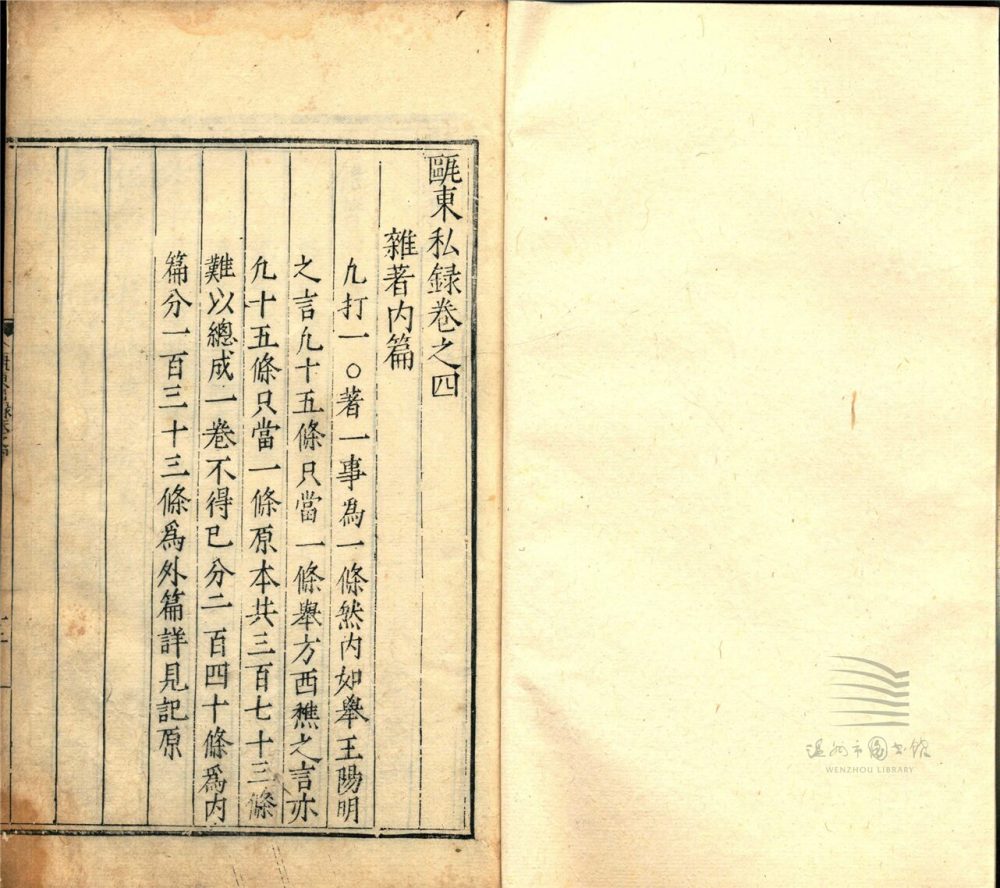 甌東私録卷之四
雜著内篇
凢打一○著一事為一條然内如舉王陽明
之言凢十五條只當一條舉方西樵之言亦
凢十五條只當一條原本共三百七十三條
難以總成一卷不得已分二百四十條爲内
篇分一百三十三條爲外篇詳見記原
温州市图书馆
WENZHOU LIBRARY